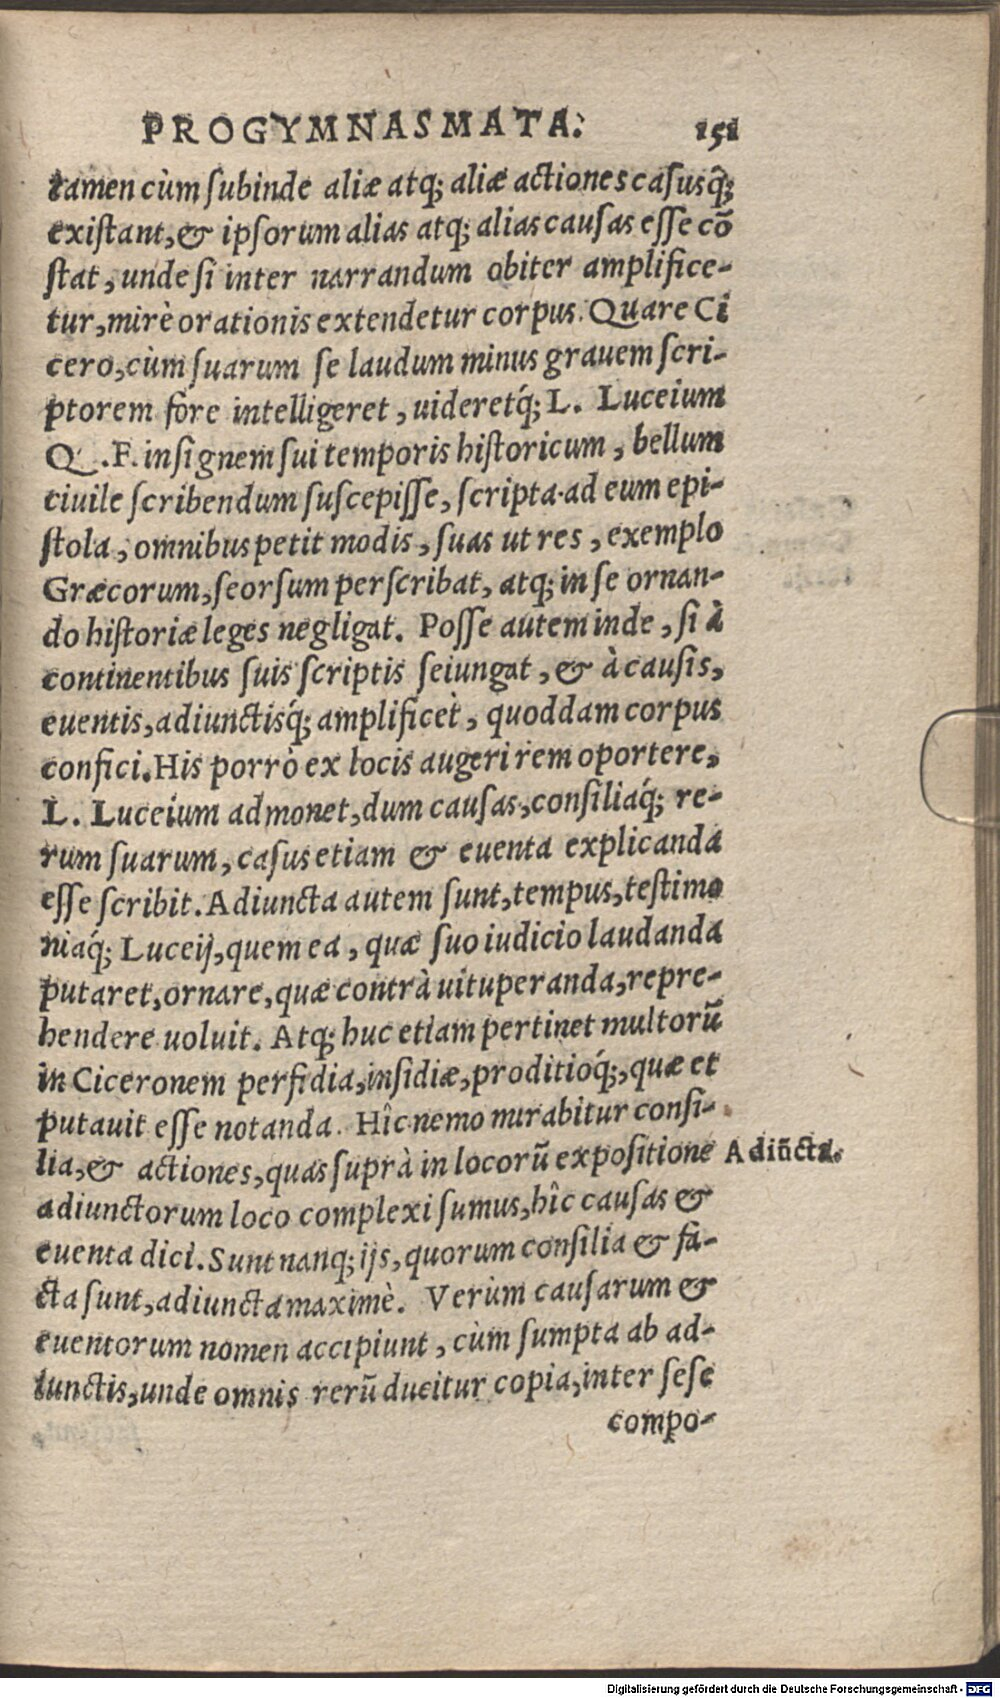 PROGYMNASMATA. 151
tamen cùm subinde aliæ atq; aliæ actiones casusq́;
existant, & ipsorum alias atq; alias causas esse cō
stat, unde si inter narrandum obiter amplifice-
tur, mirè orationis extendetur corpus. Quare Ci
cero, cùm suarum se laudum minus grauem scri-
ptorem fore intelligeret, uideretq́; L. Luceium
Q.F. insignem sui temporis historicum, bellum
ciuile scribendum suscepisse, scripta ad eum epi-
stola, omnibus petit modis, suas ut res, exemplo
Græcorum, seorsum perscribat, atq; in se ornan-
do historiæ leges negligat. Posse autem inde, si à
continentibus suis scriptis seiungat, & à causis,
euentis, adiunctisq́; amplificet, quoddam corpus
confici. His porrò ex locis augeri rem oportere,
L. Luceium admonet, dum causas, consiliaq́; re-
rum suarum, casus etiam & euenta explicanda
esse scribit. Adiuncta autem sunt, tempus, testimo
niaq́; Luceij, quem ea, quæ suo iudicio laudanda
putaret, ornare, quæ contrà uituperanda, repre-
hendere uoluit. Atq; huc etiam pertinet multorū
in Ciceronem perfidia, insidiæ, proditioq́;, quæ et
putauit esse notanda. Hîc nemo mirabitur consi-
lia, & actiones, quas suprà in locorū expositione Adiūcta.
adiunctorum loco complexi sumus, hîc causas &
euenta dici. Sunt nanq; ijs, quorum consilia & fa-
cta sunt, adiuncta maximè. Verùm causarum &
euentorum nomen accipiunt, cùm sumpta ab ad-
iunctis, unde omnis rerū ducitur copia, inter sese
compo-
Digitalisierung gefördert durch die Deutsche Forschungsgemeinschaft - DFG